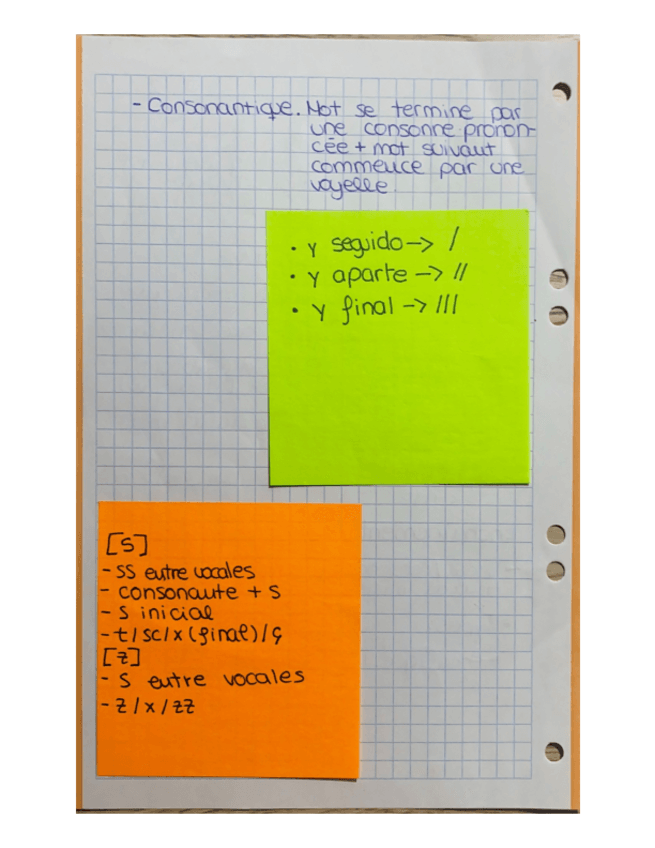 - Consonantique. Mot se termine par
une consonne pronon-
cée + mot suivant
commence par une
voyelle.
• y seguido -> /
• y aparte -> //
• y final -> ///
[s]
- ss entre vocales
- consonante + s
- s inicial
- t / sc / x (final) / ç
[z]
- s entre vocales
- z / x / zz